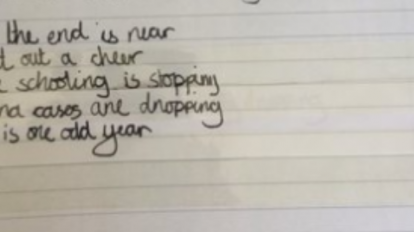 the end is near
out a cheer
schooling is stopping
cases are dropping
is one odd year